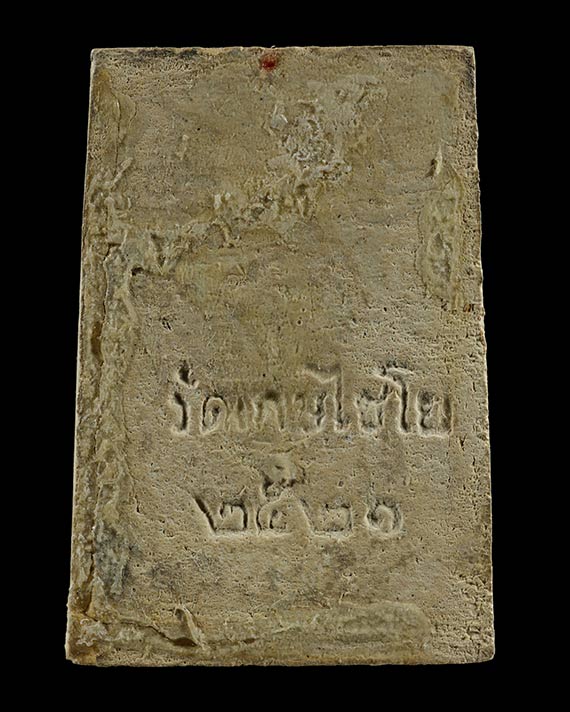 วัดเกษไชโย
๒๕๒๑